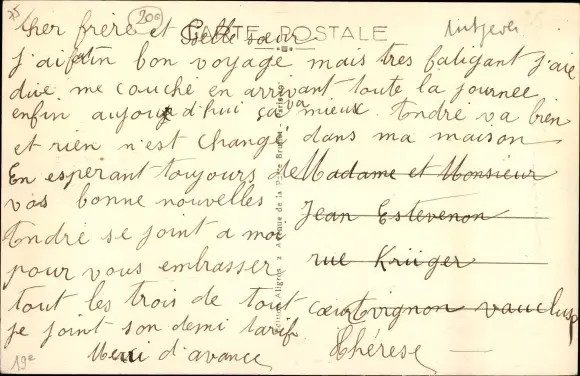 75
200
CARTE POSTALE
Cher frère et Belle sœur
j'ai fait un bon voyage mais très fatigant j'ai
due me couché en arrivant toute la journée
enfin aujourd'hui ça va mieux. André va bien
et rien n'est changé dans ma maison
En esperant toujours de
vos bonne nouvelles
André se joint a moi
pour vous embrasser
tout les trois de tout cœur
je joint son demi tarif
Merci d'avance Thérèse
Madame et Monsieur
Jean Estevenon
rue Krüger
Avignon vaucluse
19e